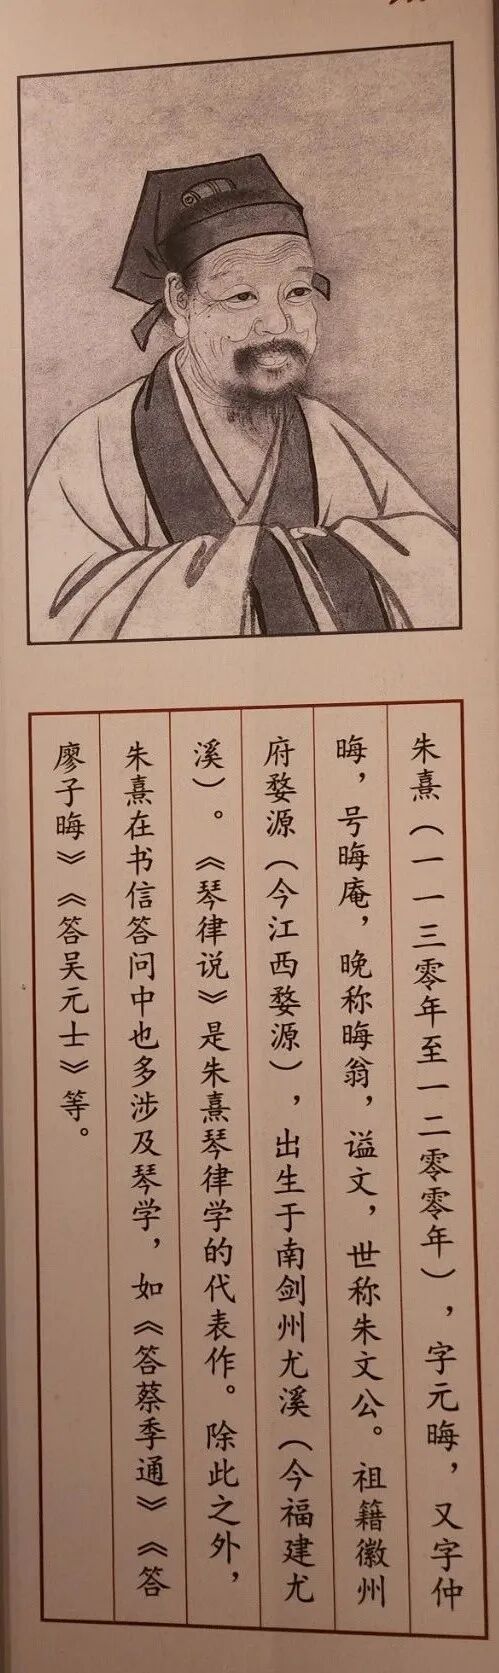 朱熹（一一三零年至一二零零年），字元晦，又字仲
晦，号晦庵，晚称晦翁，谥文，世称朱文公。祖籍徽州
府婺源（今江西婺源），出生于南剑州尤溪（今福建尤
溪）。《琴律说》是朱熹琴律学的代表作。除此之外，
朱熹在书信答问中也多涉及琴学，如《答蔡季通》《答
廖子晦》《答吴元士》等。